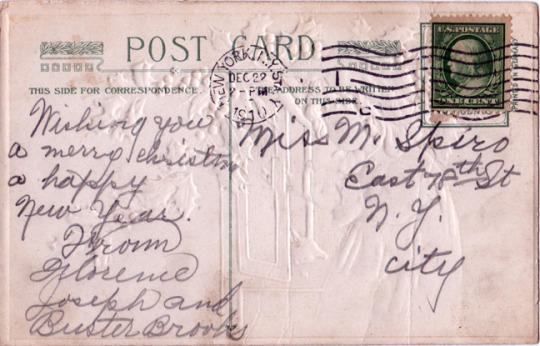 POST CARD
THIS SIDE FOR CORRESPONDENCE.
THE ADDRESS TO BE WRITTEN
ON THIS SIDE.
NEW YORK, N.Y.
DEC 22
2 - PM
1910
U.S. POSTAGE
ONE CENT
Wishing you
a merry christm
a happy
New Year.
From
Florence
Joseph and
Buster Brooks
Miss M. Spiro
East 78th St
N. Y.
City